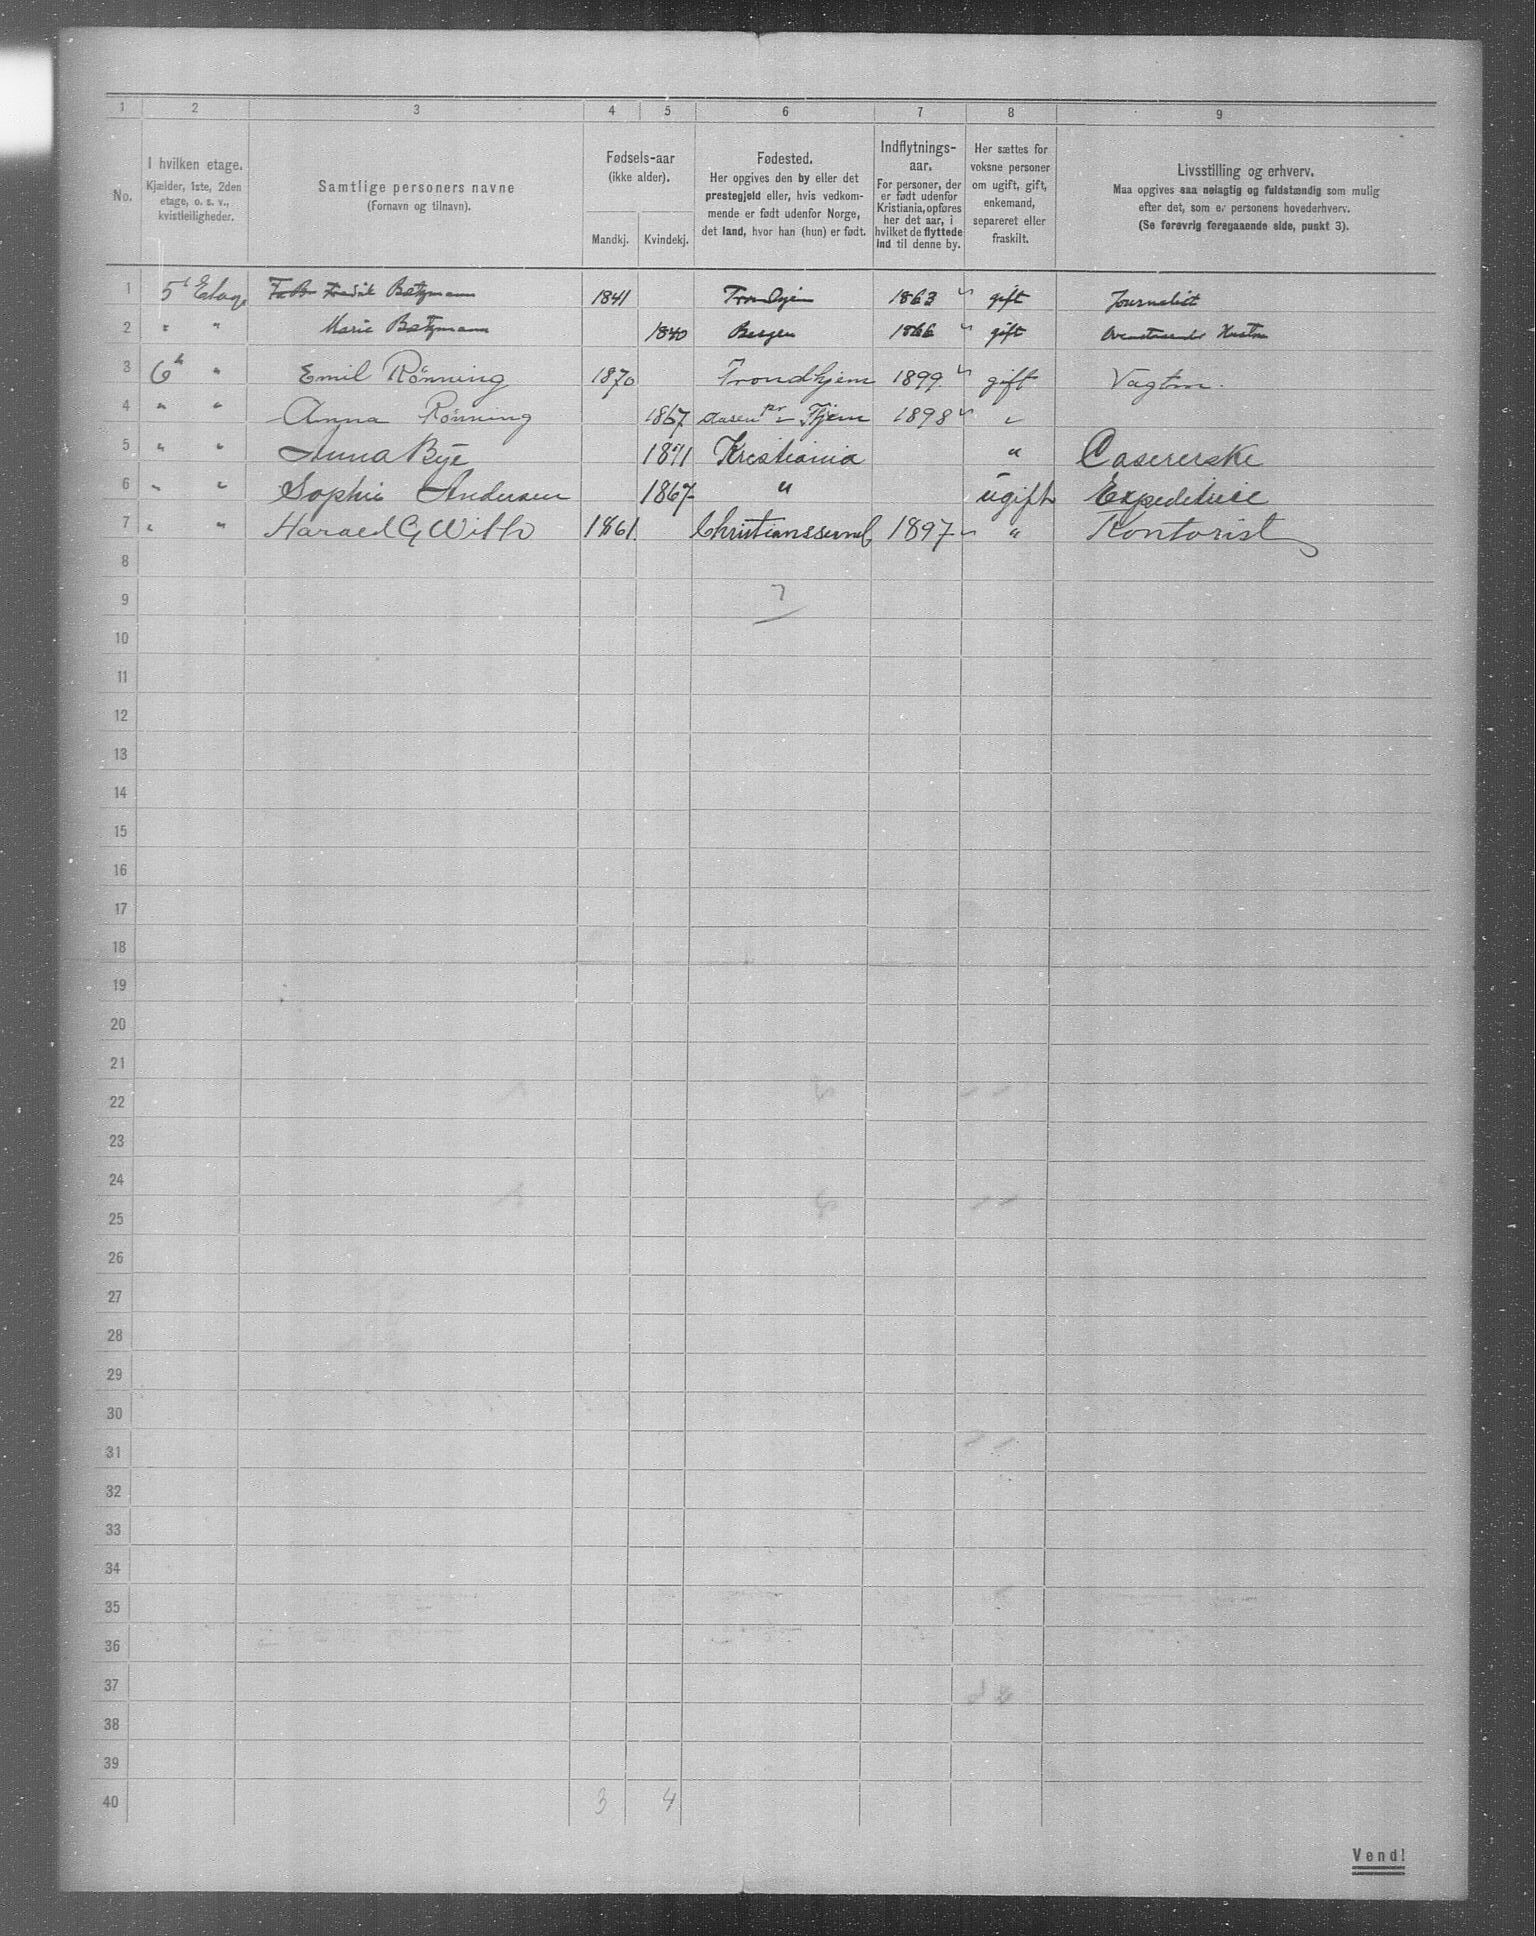 1 2 3 4 5 6 7 8 9
No.
I hvilken etage.
Kjælder, 1ste, 2den
etage, o. s. v.,
kvistleiligheder.
Samtlige personers navne
(Fornavn og tilnavn).
Fødsels-aar
(ikke alder).
Mandkj. Kvindekj.
Fødested.
Her opgives den by eller det
prestegjeld eller, hvis vedkom-
mende er født udenfor Norge,
det land, hvor han (hun) er født.
Indflytnings-
aar.
For personer, der
er født udenfor
Kristiania, opføres
her det aar, i
hvilket de flyttede
ind til denne by.
Her sættes for
voksne personer
om ugift, gift,
enkemand,
separeret eller
fraskilt.
Livsstilling og erhverv.
Maa opgives saa nøiagtig og fuldstændig som mulig
efter det, som er personens hovederhverv.
(Se forøvrig foregaaende side, punkt 3).
1 5' Etage Fredrik Bætzmann 1841 1863 gift Journalist
2 " " Marie Bætzmann 1840 Bergen 1866 gift
3 6 " Emil Rönning 1870 Trondhjem 1899 gift Vagtm.
4 " " Anna Rönning 1867 Aasen 1898 "
5 " " Anna Bye 1871 Kristiania "
6 " " Sophie Andersen 1867 " ugift Expeditrice
7 " " Harald G With 1861 Christianssund 1897 " Kontorist
8
9 7
10
11
12
13
14
15
16
17
18
19
20
21
22
23
24
25
26
27
28
29
30
31
32
33
34
35
36
37
38
39
40 3 4
Vend!